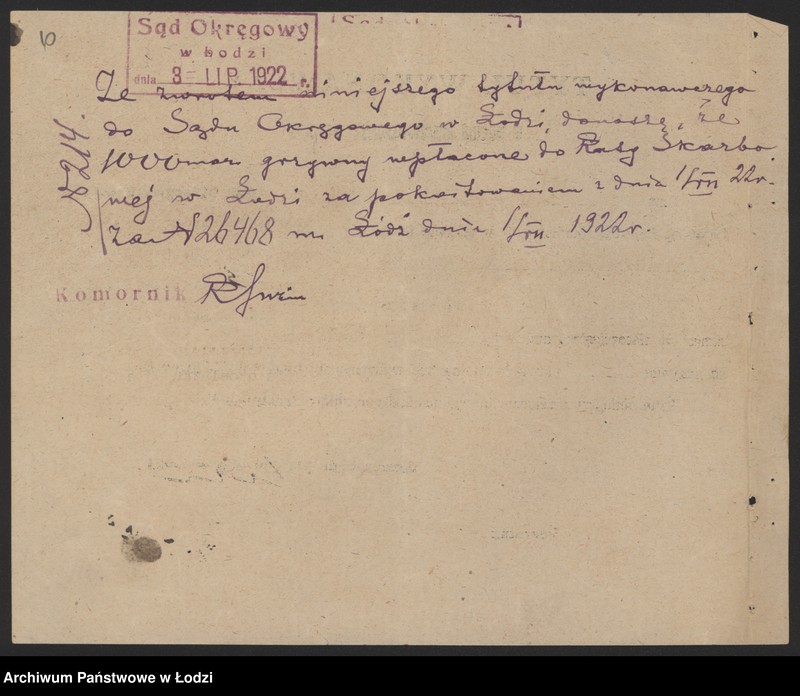 10
Sąd Okręgowy
w Łodzi
dnia 3 – LIP. 1922 r.
Ze zwrotem niniejszego tytułu wykonawczego
do Sądu Okręgowego w Łodzi, donoszę, że
1000 mar. grzywny wpłacone do Kasy Skarbo
wej w Łodzi za pokwitowaniem z dnia 1/VII 22 r.
za N 26468 m. Łódź dnia 1/VII 1922 r.
214.
Komornik
Archiwum Państwowe w Łodzi